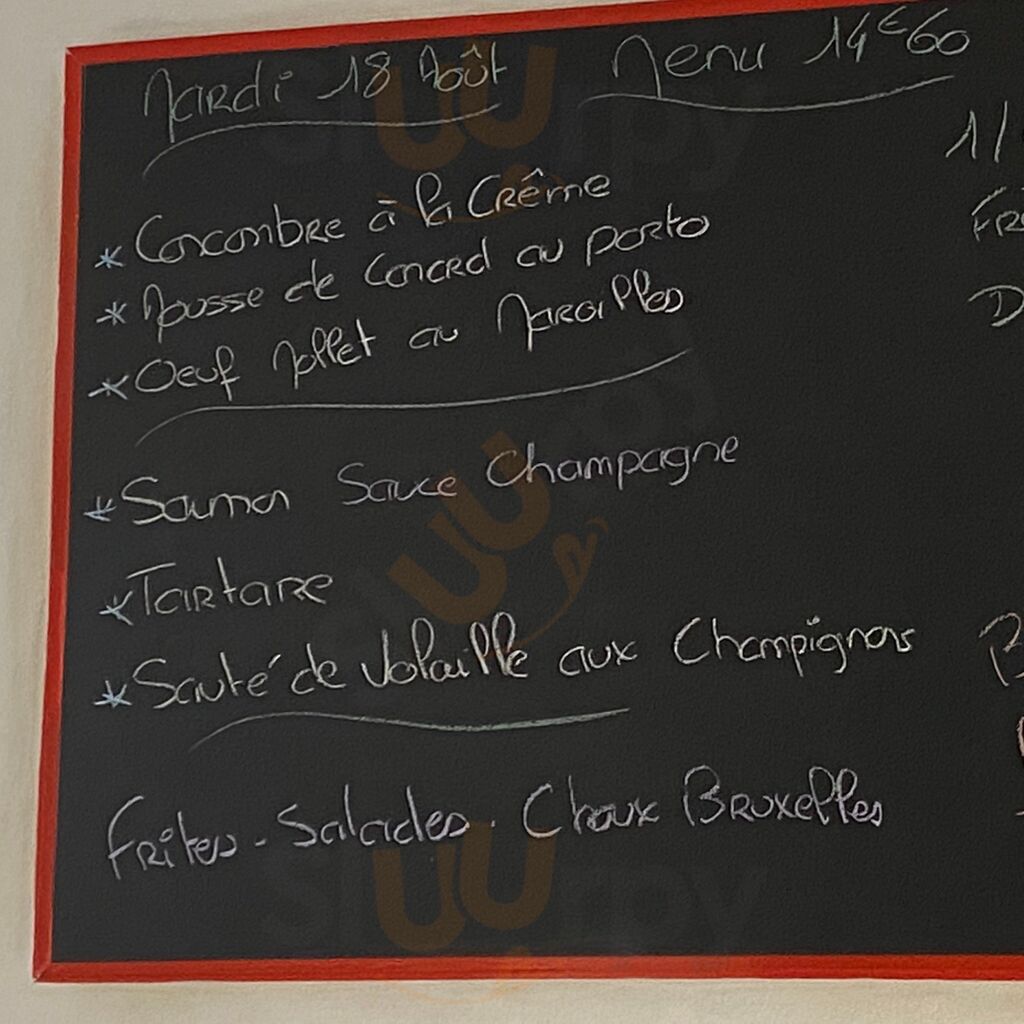 Mardi 18 Août Menu 14€60
* Concombre à la Crême
* Mousse de Canard au porto
* Oeuf Mollet au Maroilles
* Saumon Sauce Champagne
* Tartare
* Sauté de Volaille aux Champignons
Frites - Salades - Choux Bruxelles
1/
FR
D
B